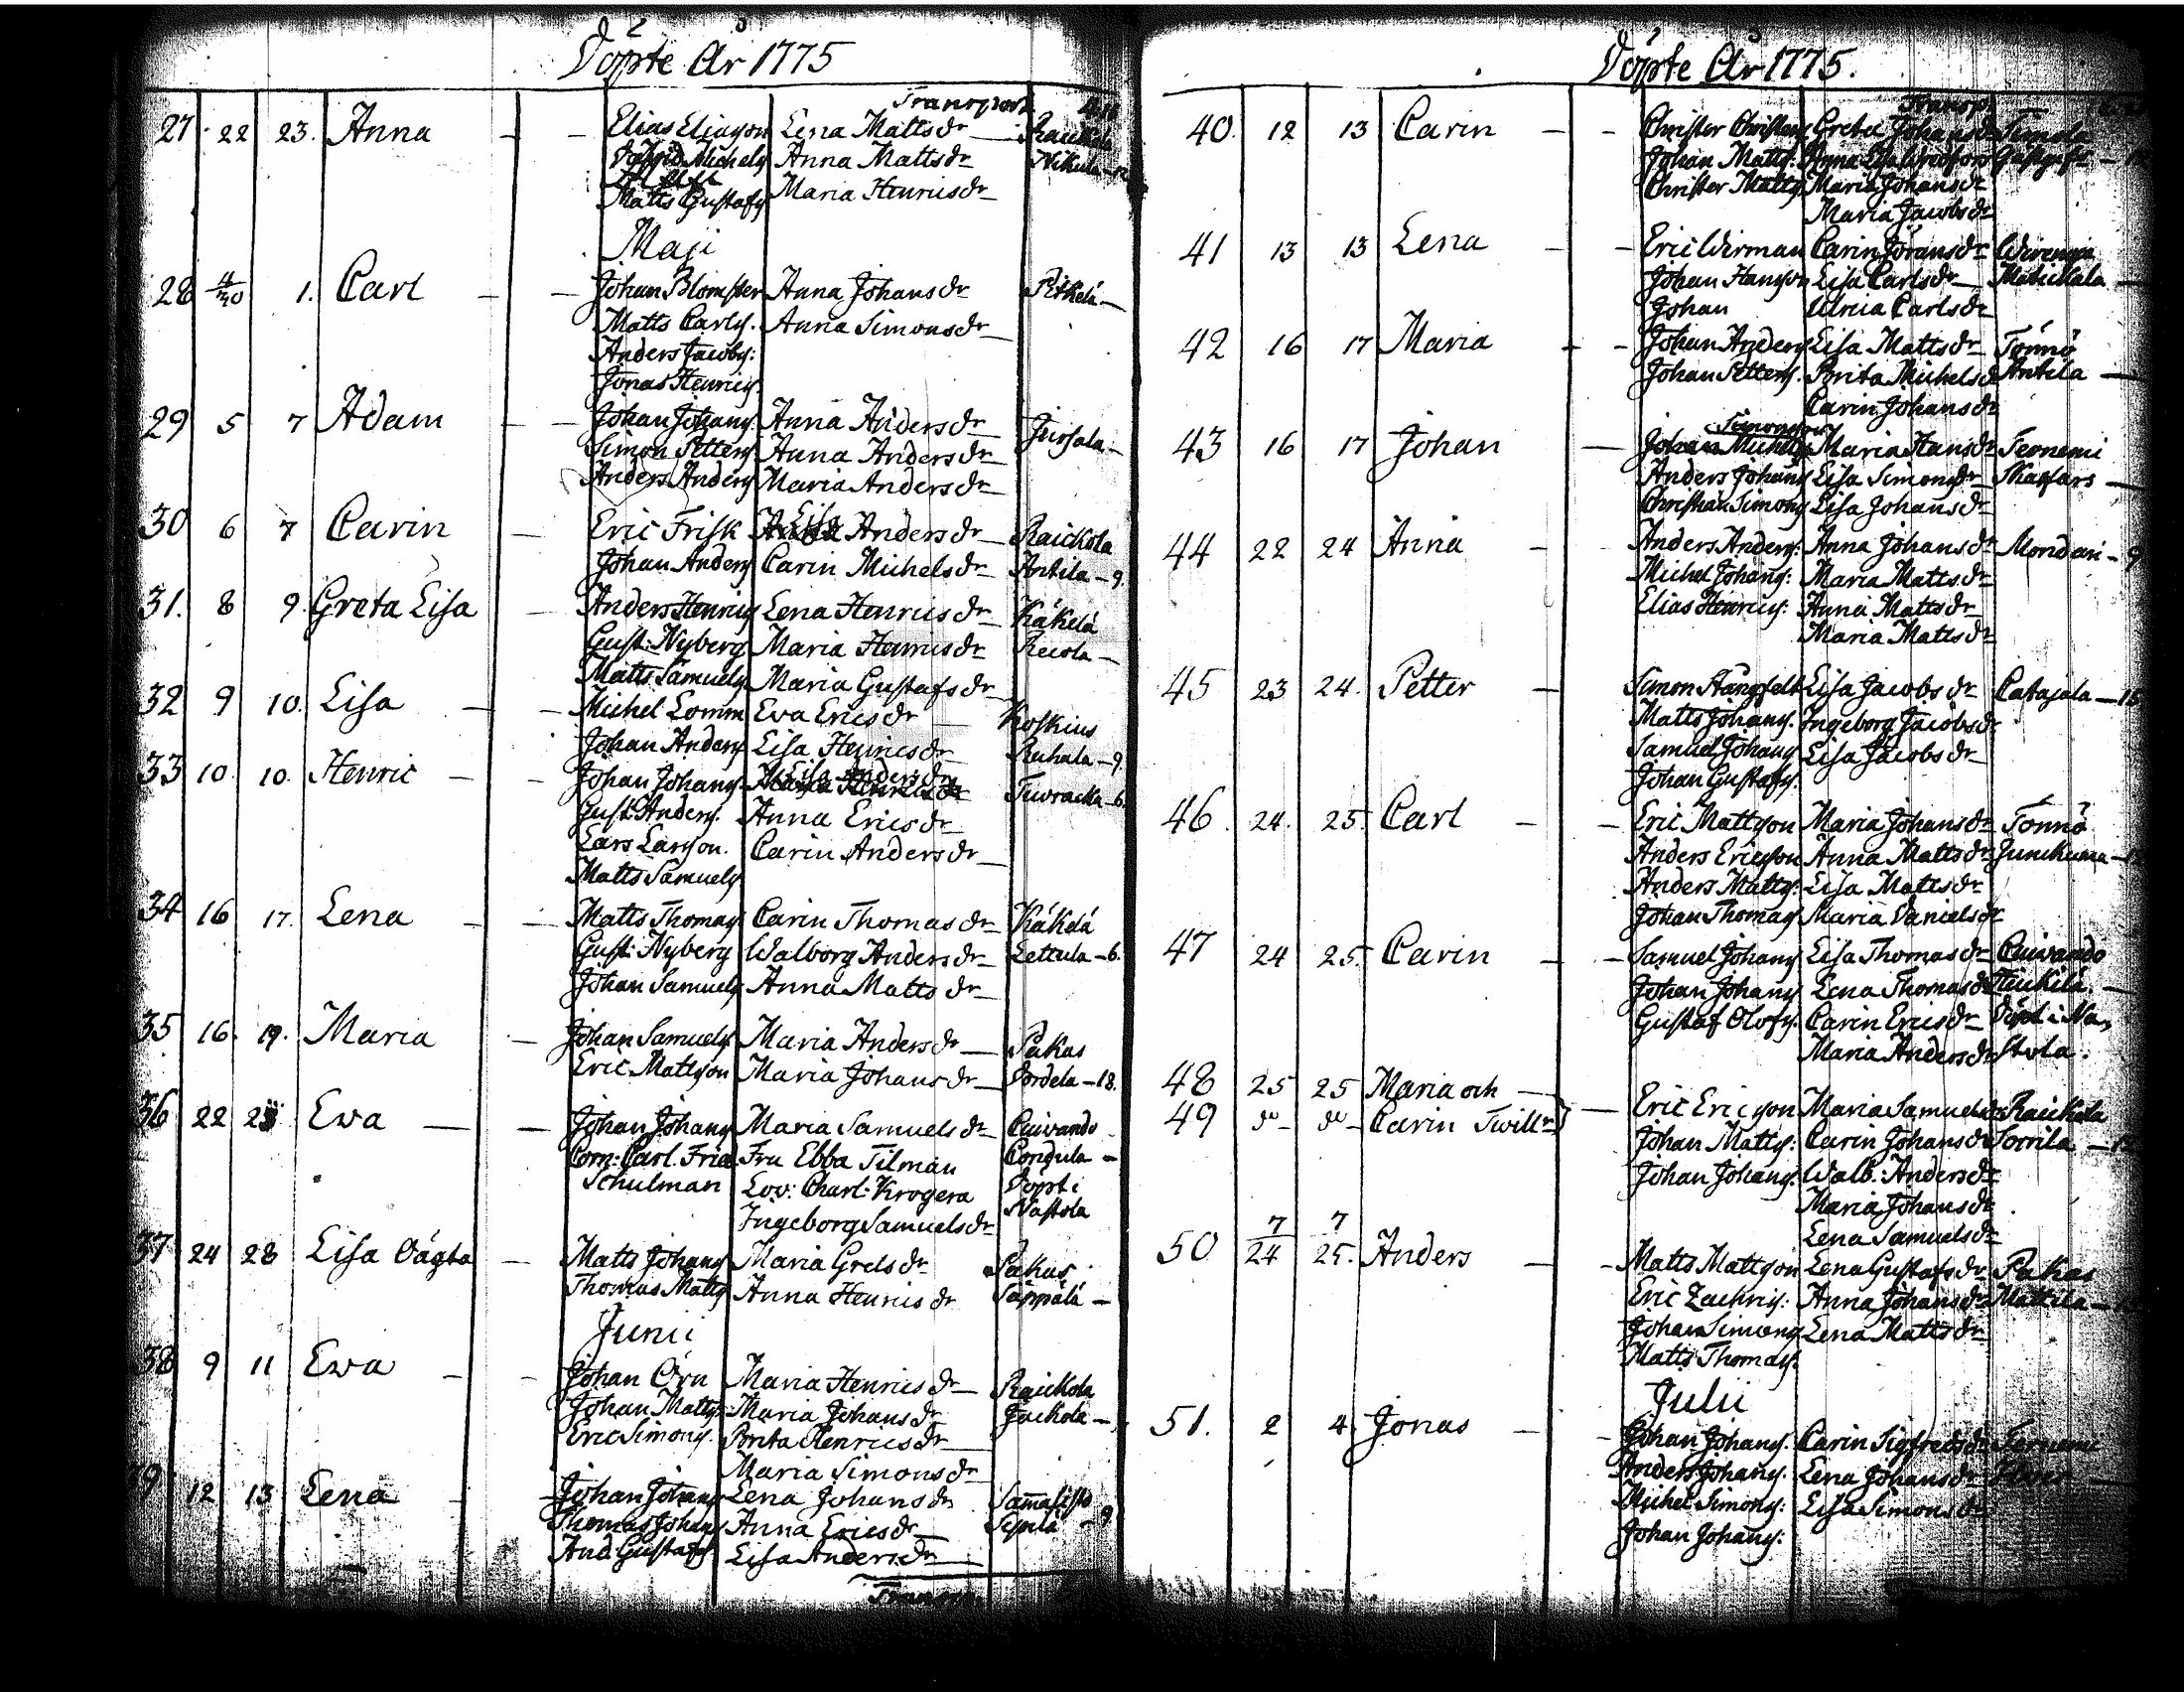 Döpte År 1775
Transport
27 22 23. Anna — Elias Eliaſson Lena Matts dr — Raickola
Michels Anna Matts dr Nikula
Matts Gustafs Maria Henrics dr
Maji
28 4/30 1. Carl — Johan Blomster Anna Johans dr Pitkelä —
Matts Carls. Anna Simons dr
Anders Jacobs:
Jonas Henrics
29 5 7 Adam — Johan Johans. Anna Anders dr Jursala —
Simon Petters Anna Anders dr
Anders Anders Maria Anders dr
30 6 7 Carin — Eric Frisk Lisa Anders dr Raickola
Johan Anders Carin Michels dr Antila — 9.
31. 8 9. Greta Lisa — Anders Henrics Lena Henrics dr Käkelä
Gust: Nyberg Maria Henrics dr Recola —
Matts Samuels Maria Gustafs dr
32 9 10. Lisa — Michel Lomm Eva Erics dr Koskius
Johan Anders Lisa Henrics dr Ruhala — 9.
33 10. 10. Henric — Johan Johans. Lisa Anders dr — 6.
Gust: Anders. Anna Erics dr
Lars Larsson. Carin Anders dr
Matts Samuels
34 16 17. Lena — Matts Thomas Carin Thomas dr Käkelä
Gust: Nyberg Walborg Anders dr Lettula — 6.
Johan Samuels Anna Matts dr
35 16. 19. Maria — Johan Samuels Maria Anders dr Pakas
Eric Mattsson Maria Johans dr Dordela — 18.
36 22 23 Eva — Johan Johans Maria Samuels dr Cuivando
Corn: Carl. Fried. Fru Ebba Tilman Congula —
Schulman Lov: Charl: Krogera Döpt i
Ingeborg Samuels dr Nastola
37 24 28 Lisa Oägta — Matts Johans Maria Grels dr Pakas
Thomas Matts Anna Henrics dr Säppälä —
Junii
38 9 11 Eva — Johan Örn Maria Henrics dr Raickola
Johan Matts. Maria Johans dr Jackola —
Eric Simons. Brita Henrics dr
Maria Simons dr
39 12 13 Lena — Johan Johans Lena Johans dr
Thomas Johans Anna Erics dr Sepilä — 9
And: Gustafs Lisa Anders dr
Transp.
Döpte År 1775.
Transp.
40. 12 13 Carin — Christer Christers Greta Johans dr Timola
Johan Matts. Anna Lisa
Christer Matts. Maria Johans dr
Maria Jacobs dr
41 13 13 Lena — Eric Wirman Carin Jörans dr
Johan Hansson Lisa Carls dr — Matickala —
Johan Ulrica Carls dr
42 16 17 Maria — Johan Anders Lisa Matts dr Tönnö
Johan Petters. Brita Michels dr Antila —
Carin Johans dr
Simonsson
43 16 17 Johan — Johan Michels Maria Hans dr Tervnemi
Anders Johans Lisa Simons dr Skaffars —
Christian Simons Lisa Johans dr
44 22 24 Anna — Anders Anders: Anna Johans dr Mondari — 9
Michel Johans: Maria Matts dr
Elias Henrics: Anna Matts dr
Maria Matts dr
45 23 24. Petter — Simon Stångfelt Lisa Jacobs dr Catajala —
Matts Johans. Ingeborg Jacobs dr
Samuel Johans Lisa Jacobs dr
Johan Gustafs.
46. 24. 25. Carl — Eric Mattsson Maria Johans dr Tönnö
Anders Ericsson Anna Matts dr Junckuma —
Anders Matts: Lisa Matts dr
Johan Thomas Maria Daniels dr
47 24 25. Carin — Samuel Johans Lisa Thomas dr Cuivando
Johan Johans Lena Thomas dr Heickilä. —
Gustaf Olofs. Carin Erics dr Döpt i Na,
Maria Anders dr Stola.
48 25 25 Maria och —
49 do do Carin Twill: } — Eric Ericsson Maria Samuels dr Raickola
Johan Matts: Carin Johans dr Sorrila —
Johan Johans. Walb: Anders dr
Maria Johans dr
Lena Samuels dr
50 7/24 7/25. Anders — Matts Mattsson Lena Gustafs dr Pakas
Eric Zachris: Anna Johans dr Mattila —
Johan Simons Lena Matts dr
Matts Thomas.
Julii
51. 2 4. Jonas — Johan Johans. Carin Sigfreds dr
Anders Johans. Lena Johans dr
Michel Simons: Lisa Simons dr
Johan Johans: